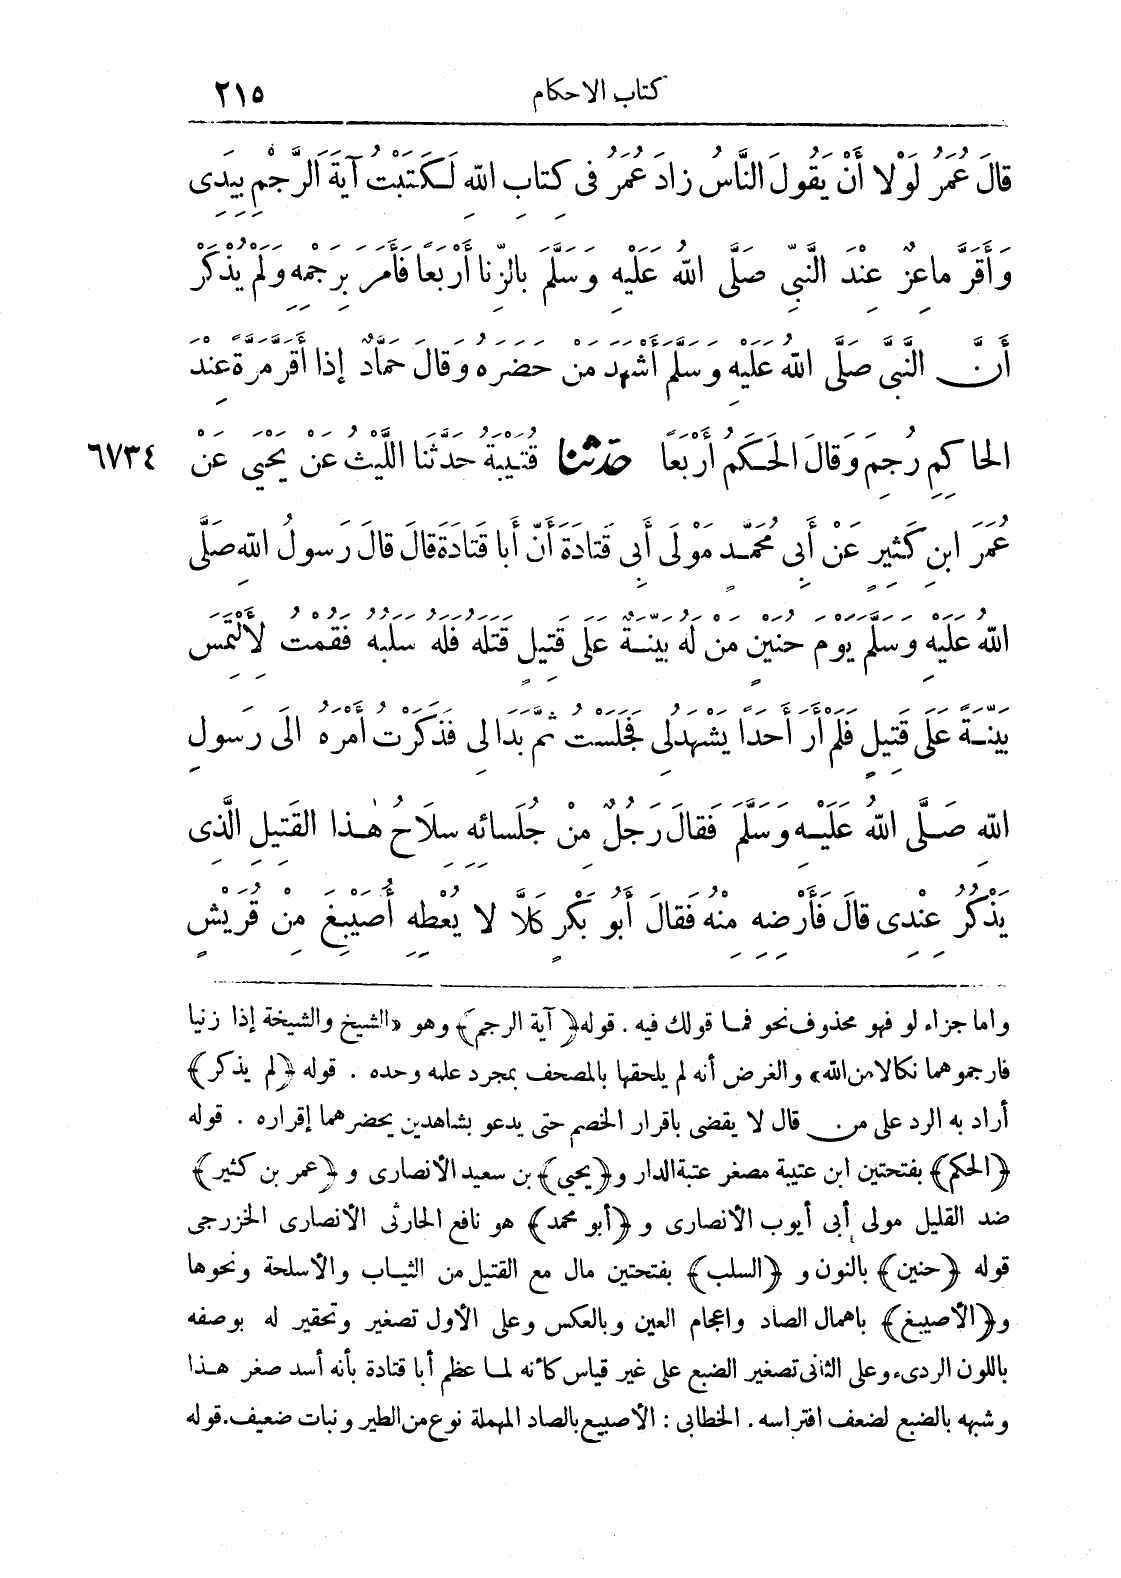 كتاب الاحكام
٢١٥
قالَ عُمَرُ لَوْلا أَنْ يَقُولَ النَّاسُ زادَ عُمَرُ فى كِتابِ اللهِ لَكَتَبْتُ آيَةَ الرَّجْمِ بِيَدِى
وَأَقَرَّ ماعِزٌ عِنْدَ النَّبِىِّ صَلَّى اللهُ عَلَيْهِ وَسَلَّمَ بالزِّنا أَرْبَعًا فَأَمَرَ بِرَجْمِهِ وَلَمْ يُذْكَرْ
أَنَّ النَّبِىَّ صَلَّى اللهُ عَلَيْهِ وَسَلَّمَ أَشْهَدَ مَنْ حَضَرَهُ وَقالَ حَمَّادٌ إذا أَقَرَّ مَرَّةً عِنْدَ
الحاكِمِ رُجِمَ وَقالَ الحَكَمُ أَرْبَعًا حَدَّثَنا قُتَيْبَةُ حَدَّثَنا اللَّيْثُ عَنْ يَحْيَى عَنْ
٦٧٣٤
عُمَرَ ابنِ كَثِيرٍ عَنْ أَبِى مُحَمَّدٍ مَوْلَى أَبِى قَتادَةَ أَنَّ أَبا قَتادَةَ قالَ قالَ رَسولُ اللهِ صَلَّى
اللهُ عَلَيْهِ وَسَلَّمَ يَوْمَ حُنَيْنٍ مَنْ لَهُ بَيِّنَةٌ عَلَى قَتِيلٍ قَتَلَهُ فَلَهُ سَلَبُهُ فَقُمْتُ لِأَلْتَمِسَ
بَيِّنَةً عَلَى قَتِيلٍ فَلَمْ أَرَ أَحَدًا يَشْهَدُ لِى فَجَلَسْتُ ثُمَّ بَدَا لِى فَذَكَرْتُ أَمْرَهُ الَى رَسولِ
اللهِ صَلَّى اللهُ عَلَيْهِ وَسَلَّمَ فَقالَ رَجُلٌ مِنْ جُلَسائِهِ سِلَاحُ هٰذا القَتِيلِ الَّذِى
يَذْكُرُ عِنْدِى قالَ فَأَرْضِهِ مِنْهُ فَقالَ أَبُو بَكْرٍ كَلَّا لا يُعْطِهِ أُصَيْبِغَ مِنْ قُرَيْشٍ
واما جزاء لو فهو محذوف نحو فما قولك فيه . قوله ﴿آية الرجم﴾ وهو «الشيخ والشيخة إذا زنيا
فارجموهما نكالا من الله» والغرض أنه لم يلحقها بالمصحف بمجرد علمه وحده . قوله ﴿لم يذكر﴾
أراد به الرد على من قال لا يقضى باقرار الخصم حتى يدعو بشاهدين يحضرهما إقراره . قوله
﴿الحكم﴾ بفتحتين ابن عتيبة مصغر عتبة الدار و﴿يحيى﴾ بن سعيد الأنصارى و ﴿عمر بن كثير﴾
ضد القليل مولى أبى أيوب الأنصارى و ﴿أبو محمد﴾ هو نافع الحارثى الأنصارى الخزرجى
قوله ﴿حنين﴾ بالنون و ﴿السلب﴾ بفتحتين مال مع القتيل من الثياب والأسلحة ونحوها
و﴿الأصيبغ﴾ باهمال الصاد واعجام العين وبالعكس وعلى الأول تصغير وتحقير له بوصفه
باللون الردىء وعلى الثانى تصغير الضبع على غير قياس كأنه لما عظم أبا قتادة بأنه أسد صغر هذا
وشبهه بالضبع لضعف افتراسه . الخطابى : الأصيبع بالصاد المهملة نوع من الطير ونبات ضعيف. قوله